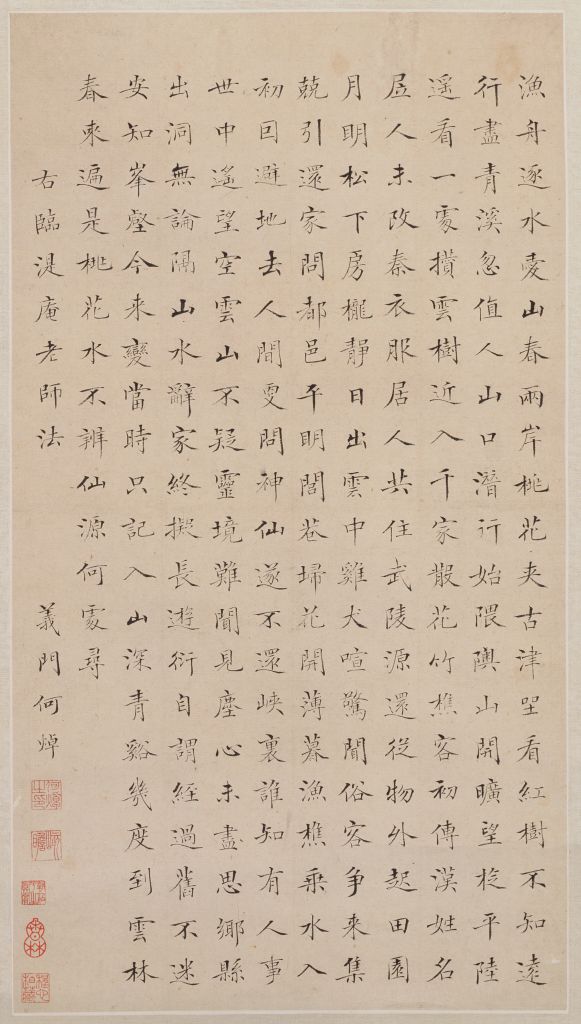 漁舟逐水愛山春兩岸桃花夾古津坐看紅樹不知遠
行盡青溪忽值人山口潛行始隈隩山開曠望旋平陸
遥看一處攢雲樹近入千家散花竹樵客初傳漢姓名
居人未改秦衣服居人共住武陵源還從物外起田園
月明松下房櫳靜日出雲中雞犬喧驚聞俗客争来集
兢引還家問都邑平明閭巷埽花開薄暮漁樵乘水入
初因避地去人間更問神仙遂不還峽裏誰知有人事
世中遥望空雲山不疑靈境難聞見塵心未盡思鄉縣
出洞無論隔山水辭家終擬長遊衍自謂經過舊不迷
安知峯壑今来變當時只記入山深青谿幾度到雲林
春來遍是桃花水不辨仙源何處尋
右臨湜庵老師法 義門何焯
何焯之印
屺瞻